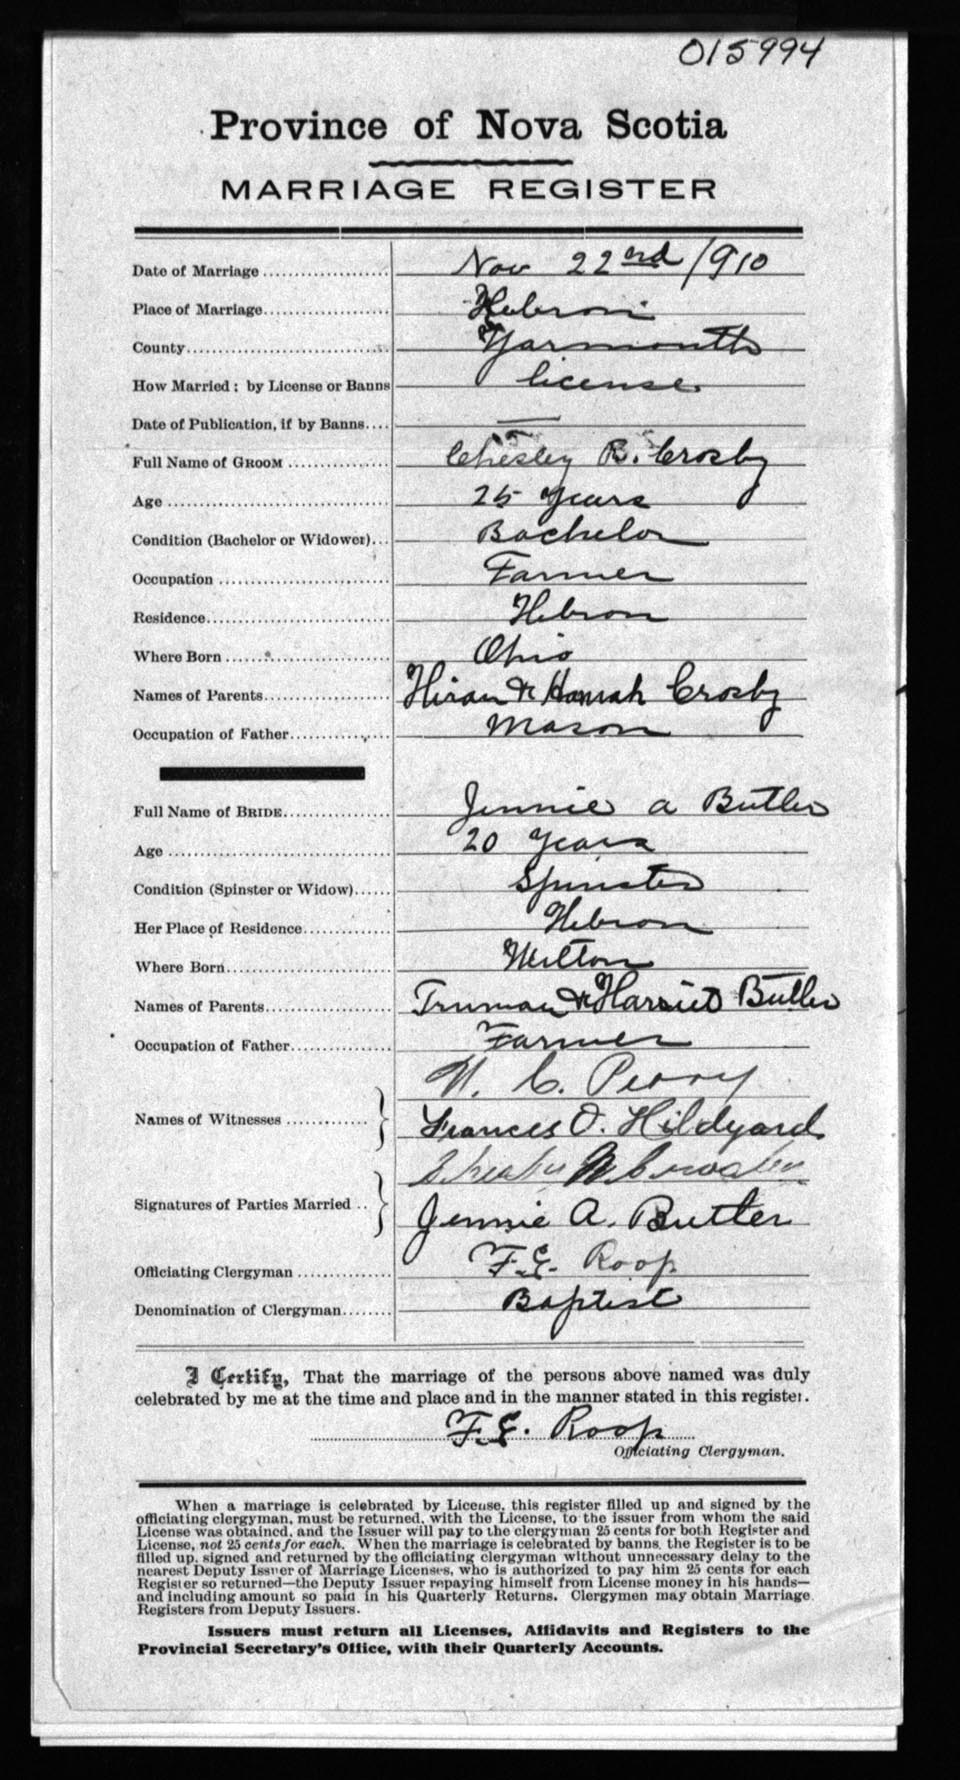 015994
Province of Nova Scotia
MARRIAGE REGISTER
Date of Marriage .................... Nov 22nd/910
Place of Marriage.................... Hebron
County.............................. Yarmouth
How Married: by License or Banns license.
Date of Publication, if by Banns.... —
Full Name of GROOM ................ Chesley B. Crosby
Age ................................ 25 Years
Condition (Bachelor or Widower)... Bachelor
Occupation ......................... Farmer
Residence........................... Hebron
Where Born ......................... Ohio
Names of Parents.................... Hiram & Hannah Crosby
Occupation of Father................ Mason
Full Name of BRIDE.................. Jennie a Butler
Age ................................ 20 Years
Condition (Spinster or Widow)...... Spinster
Her Place of Residence............. Hebron
Where Born.......................... Milton
Names of Parents.................... Truman & Harriet Butler
Occupation of Father................ Farmer
C. Perry
Names of Witnesses .............
Frances O. Hildyard
Signatures of Parties Married ..
Jennie A. Butler
Officiating Clergyman .............. F.E. Roop
Denomination of Clergyman........ Baptist
I Certify, That the marriage of the persons above named was duly
celebrated by me at the time and place and in the manner stated in this register.
F.E. Roop
Officiating Clergyman.
When a marriage is celebrated by License, this register filled up and signed by the
officiating clergyman, must be returned, with the License, to the issuer from whom the said
License was obtained, and the Issuer will pay to the clergyman 25 cents for both Register and
License, not 25 cents for each. When the marriage is celebrated by banns, the Register is to be
filled up, signed and returned by the officiating clergyman without unnecessary delay to the
nearest Deputy Issuer of Marriage Licenses, who is authorized to pay him 25 cents for each
Register so returned—the Deputy Issuer repaying himself from License money in his hands—
and including amount so paid in his Quarterly Returns. Clergymen may obtain Marriage
Registers from Deputy Issuers.
Issuers must return all Licenses, Affidavits and Registers to the
Provincial Secretary's Office, with their Quarterly Accounts.